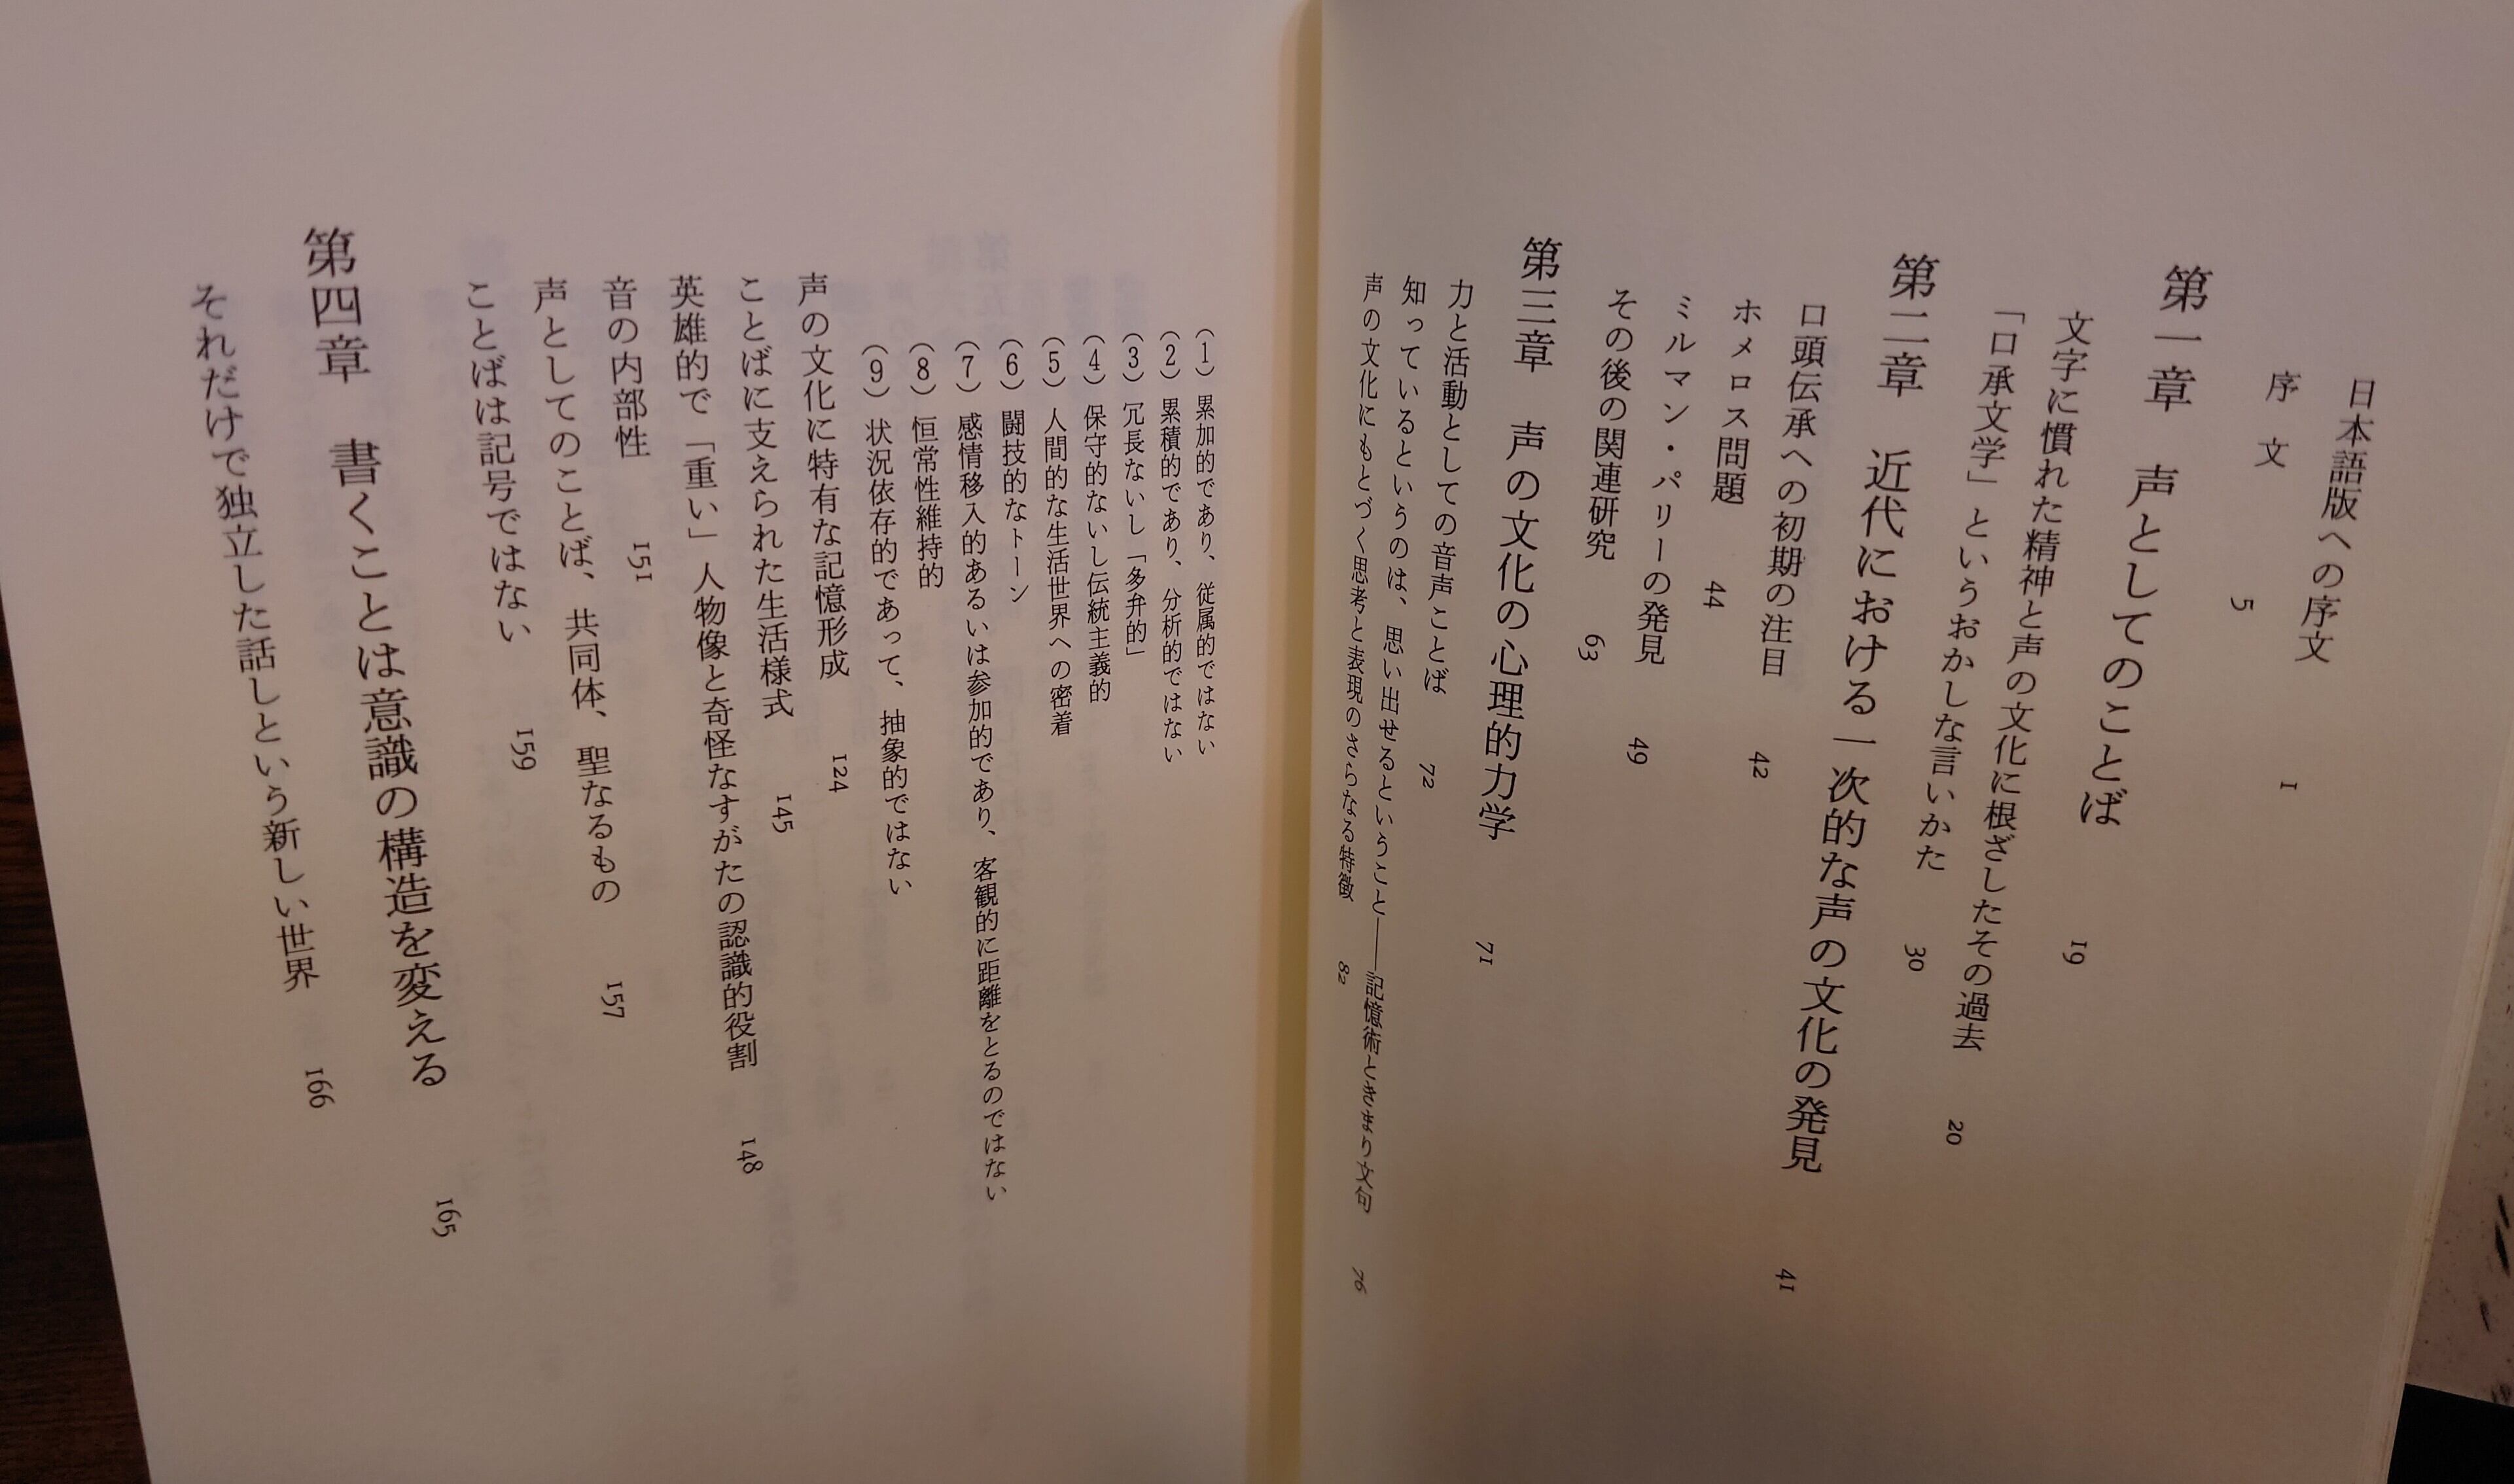 日本語版への序文 1
序文 5
第一章 声としてのことば 19
文字に慣れた精神と声の文化に根ざしたその過去 20
「口承文学」というおかしな言いかた 30
第二章 近代における一次的な声の文化の発見 41
口頭伝承への初期の注目 42
ホメロス問題 44
ミルマン・パリーの発見 49
その後の関連研究 63
第三章 声の文化の心理的力学 71
力と活動としての音声ことば 72
知っているというのは、思い出せるということ――記憶術ときまり文句 76
声の文化にもとづく思考と表現のさらなる特徴 82
(1) 累加的であり、従属的ではない
(2) 累積的であり、分析的ではない
(3) 冗長ないし「多弁的」
(4) 保守的ないし伝統主義的
(5) 人間的な生活世界への密着
(6) 闘技的なトーン
(7) 感情移入的あるいは参加的であり、客観的に距離をとるのではない
(8) 恒常性維持的
(9) 状況依存的であって、抽象的ではない
声の文化に特有な記憶形成 124
ことばに支えられた生活様式 145
英雄的で「重い」人物像と奇怪なすがたの認識的役割 148
音の内部性 151
声としてのことば、共同体、聖なるもの 157
ことばは記号ではない 159
第四章 書くことは意識の構造を変える 165
それだけで独立した話しという新しい世界 166